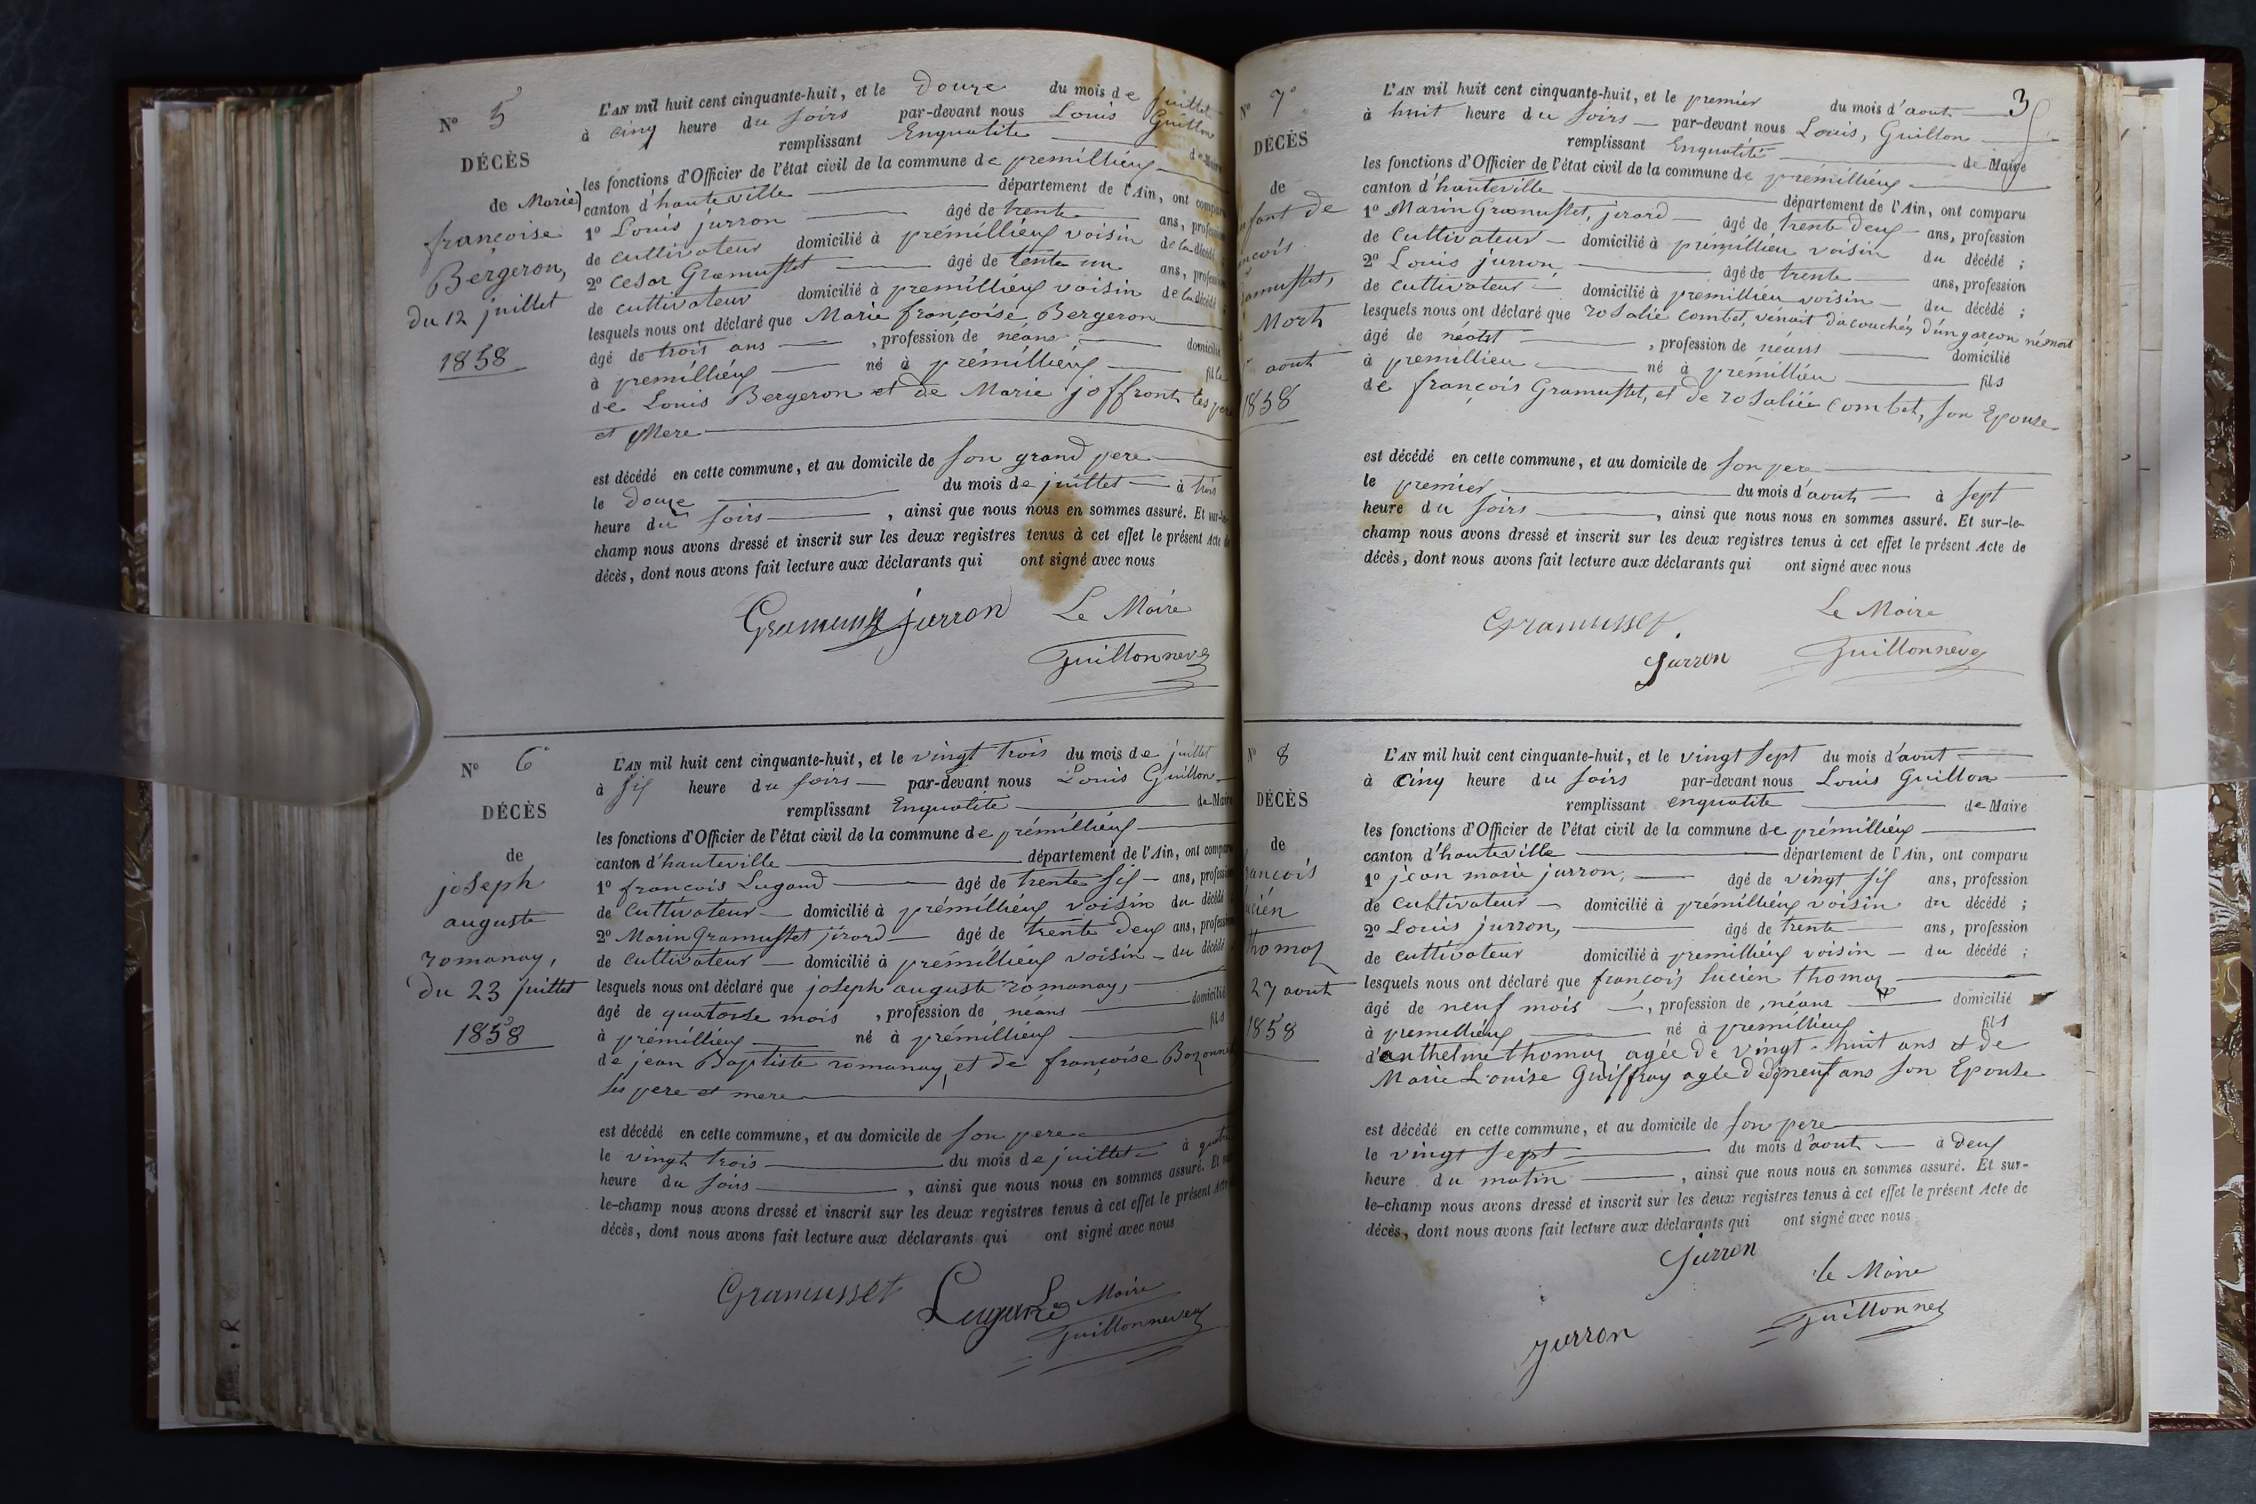 N° 5
DÉCÈS
de Marie
françoise
Bergeron,
du 12 juillet
1858
L'AN mil huit cent cinquante-huit, et le douze du mois de juillet
à cinq heure du soirs par-devant nous Louis Guillon
remplissant Enqualité de Maire
les fonctions d'Officier de l'état civil de la commune de premillieux
canton d'hauteville département de l'Ain, ont comparu
1° Louis jurron âgé de trente ans, profession
de cultivateur domicilié à prémillieux voisin de la décédé
2° Cesar Gramusset âgé de tente un ans, profession
de cultivateur domicilié à premillieux voisin de la décédé
lesquels nous ont déclaré que Marie françoise Bergeron
âgé de trois ans, profession de néans domicilié
à premillieux né à prémillieux fille
de Louis Bergeron et de Marie joffront ses pere
et Mere
est décédé en cette commune, et au domicile de son grand pere
le douze du mois de juillet à trois
heure du soirs, ainsi que nous nous en sommes assuré. Et sur-le-
champ nous avons dressé et inscrit sur les deux registres tenus à cet effet le présent Acte de
décès, dont nous avons fait lecture aux déclarants qui ont signé avec nous
Gramusset jurron Le Maire
Guillonneves
N° 6
DÉCÈS
de
joseph
auguste
romanay,
du 23 juillet
1858
L'AN mil huit cent cinquante-huit, et le vingt trois du mois de juillet
à six heure du soirs par-devant nous Louis Guillon
remplissant Enqualité de Maire
les fonctions d'Officier de l'état civil de la commune de prémillieux
canton d'hauteville département de l'Ain, ont comparu
1° francois Lugand âgé de trente six ans, profession
de cultivateur domicilié à prémillieux voisin du décédé
2° Marin Gramusset jirard âgé de trente deux ans, profession
de cultivateur domicilié à prémillieux voisin du décédé
lesquels nous ont déclaré que joseph auguste romanay,
âgé de quatorse mois, profession de néans domicilié
à prémillieux né à prémillieux fils
de jean Baptiste romanay, et de françoise Bozonnet
ses pere et mere
est décédé en cette commune, et au domicile de son pere
le vingt trois du mois de juillet à quatre
heure du soirs, ainsi que nous nous en sommes assuré. Et sur-
le-champ nous avons dressé et inscrit sur les deux registres tenus à cet effet le présent Acte
décès, dont nous avons fait lecture aux déclarants qui ont signé avec nous
Gramusset Lugand Le Maire
Guillonneves
3
N° 7
DÉCÈS
de
enfant de
ancois
ramusset,
Mort
aout
1858
L'AN mil huit cent cinquante-huit, et le premier du mois d'aout
à huit heure du soirs par-devant nous Louis, Guillon
remplissant Enqualité de Maire
les fonctions d'Officier de l'état civil de la commune de prémillieux
canton d'hauteville département de l'Ain, ont comparu
1° Marin Gramusset, jirard âgé de trente deux ans, profession
de cultivateur domicilié à prémillieu voisin du décédé ;
2° Louis jurron, âgé de trente ans, profession
de cultivateur domicilié à premillieu voisin du décédé ;
lesquels nous ont déclaré que rosalie combet, venait d'acouchéz d'un garcon né mort
âgé de néotst, profession de néans domicilié
à premillieu né à prémillieu fils
de françois Gramusset, et de rosaliie combet, son Epouse
est décédé en cette commune, et au domicile de son pere
le premier du mois d'aout à sept
heure du soirs, ainsi que nous nous en sommes assuré. Et sur-le-
champ nous avons dressé et inscrit sur les deux registres tenus à cet effet le présent Acte de
décès, dont nous avons fait lecture aux déclarants qui ont signé avec nous
Gramusset Le Maire
Jurron Guillonneves
N° 8
DÉCÈS
de
rancois
lucien
thomas
27 aout
1858
L'AN mil huit cent cinquante-huit, et le vingt sept du mois d'aout
à cinq heure du soirs par-devant nous Louis Guillon
remplissant enqualité de Maire
les fonctions d'Officier de l'état civil de la commune de prémillieux
canton d'hauteville département de l'Ain, ont comparu
1° jean marie jurron, âgé de vingt six ans, profession
de cultivateur domicilié à prémillieux voisin du décédé ;
2° Louis jurron, âgé de trente ans, profession
de cultivateur domicilié à premillieux voisin du décédé ;
lesquels nous ont déclaré que françois lucien thomas
âgé de neuf mois, profession de néans domicilié
à premillieux né à premillieux fils
d'anthelme thomas agée de vingt-huit ans & de
Marie Louise Guiffray agée dedixneuf ans son Epouse
est décédé en cette commune, et au domicile de son pere
le vingt sept du mois d'aout à deux
heure du matin, ainsi que nous nous en sommes assuré. Et sur-
le-champ nous avons dressé et inscrit sur les deux registres tenus à cet effet le présent Acte de
décès, dont nous avons fait lecture aux déclarants qui ont signé avec nous
Jurron le Maire
jurron Guillonnes